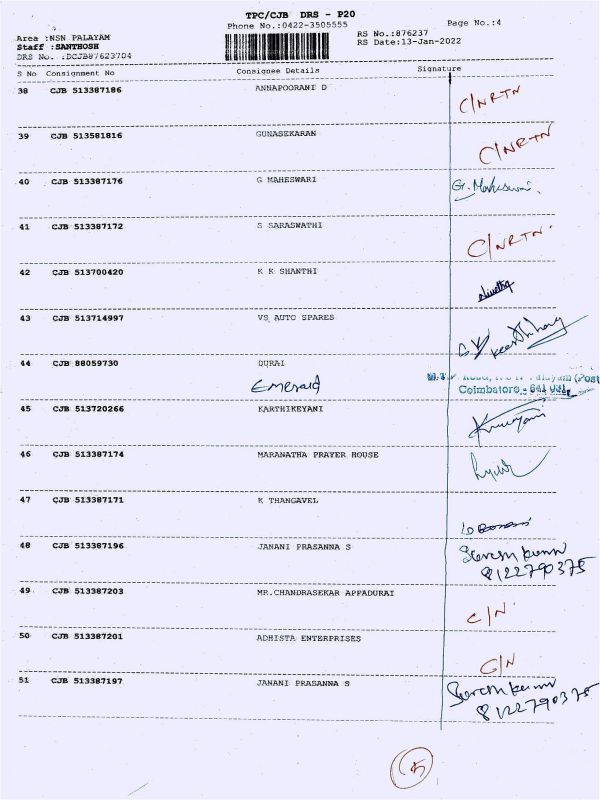 TPC/CJB DRS - P20
Phone No.:0422-3505555
Page No.:4
Area :NSN PALAYAM
RS No.:876237
Staff :SANTHOSH
RS Date:13-Jan-2022
DRS No. :DCJB87623704
S No Consignment No Consignee Details Signature
38 CJB 513387186 ANNAPOORANI D
C/NRTN
39 CJB 513581816 GUNASEKARAN
C/NRTN
40 CJB 513387176 G MAHESWARI
G. Maheswari.
41 CJB 513387172 S SARASWATHI
C/NRTN.
42 CJB 513700420 K K SHANTHI
43 CJB 513714997 VS AUTO SPARES
44 CJB 88059730 DURAI
Emerald
Coimbatore - 641 031
45 CJB 513720266 KARTHIKEYANI
46 CJB 513387174 MARANATHA PRAYER HOUSE
47 CJB 513387171 K THANGAVEL
48 CJB 513387196 JANANI PRASANNA S
8122790375
49 CJB 513387203 MR.CHANDRASEKAR APPADURAI
C/N
50 CJB 513387201 ADHISTA ENTERPRISES
C/N
51 CJB 513387197 JANANI PRASANNA S
8122790375